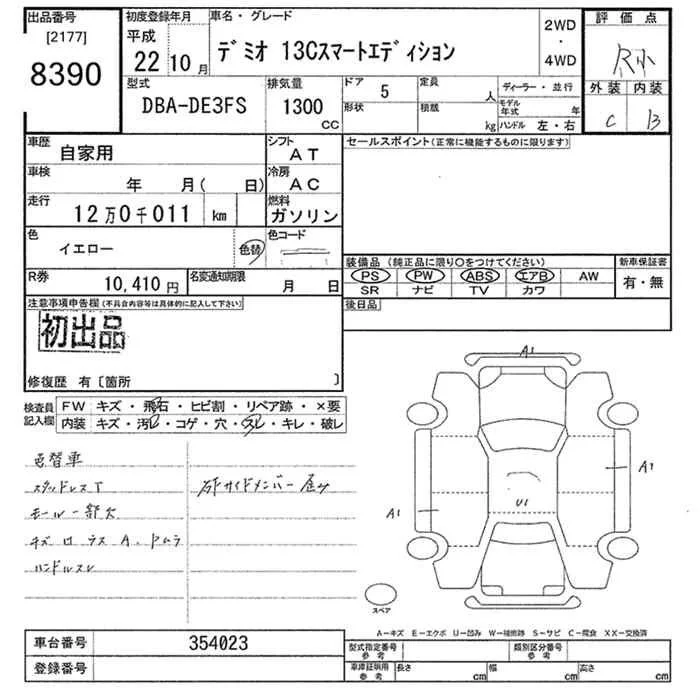 出品番号
[2177]
8390
初度登録年月
平成
22年10月
車名・グレード
デミオ 13Cスマートエディション
2WD
・
4WD
評価点
R
外装 内装
C B
型式
DBA-DE3FS
排気量
1300
CC
ドア 5
形状
定員 人
積載 kg
ディーラー・並行
モデル年式 年
ハンドル 左・右
車歴
自家用
シフト
AT
車検
年 月( 日)
冷房
AC
走行
12万0千011 km
燃料
ガソリン
色
イエロー
色替
色コード
R券
10,410円
名変通知期限
月 日
セールスポイント(正常に機能するものに限ります)
装備品(純正品に限り〇をつけてください)
PS PW ABS エアB AW
SR ナビ TV カワ
新車保証書
有・無
後日品
注意事項申告欄(不具合内容等は具体的に記入して下さい)
初出品
修復歴 有〔箇所 〕
検査員
記入欄
FW キズ・飛石・ヒビ割・リペア跡・×要
内装 キズ・汚レ・コゲ・穴・スレ・キレ・破レ
色替車
スタッドレスT
モール一部欠
ハンドルスレ
サイドメンバー
A1
A1
A1
U1
スペア
A-キズ E-エクボ U-凹み W-補修跡 S-サビ C-腐食 XX-交換済
車台番号
354023
登録番号
型式指定番号
参考
類別区分番号
参考
車庫証明用
参考
長さ cm
幅 cm
高さ cm